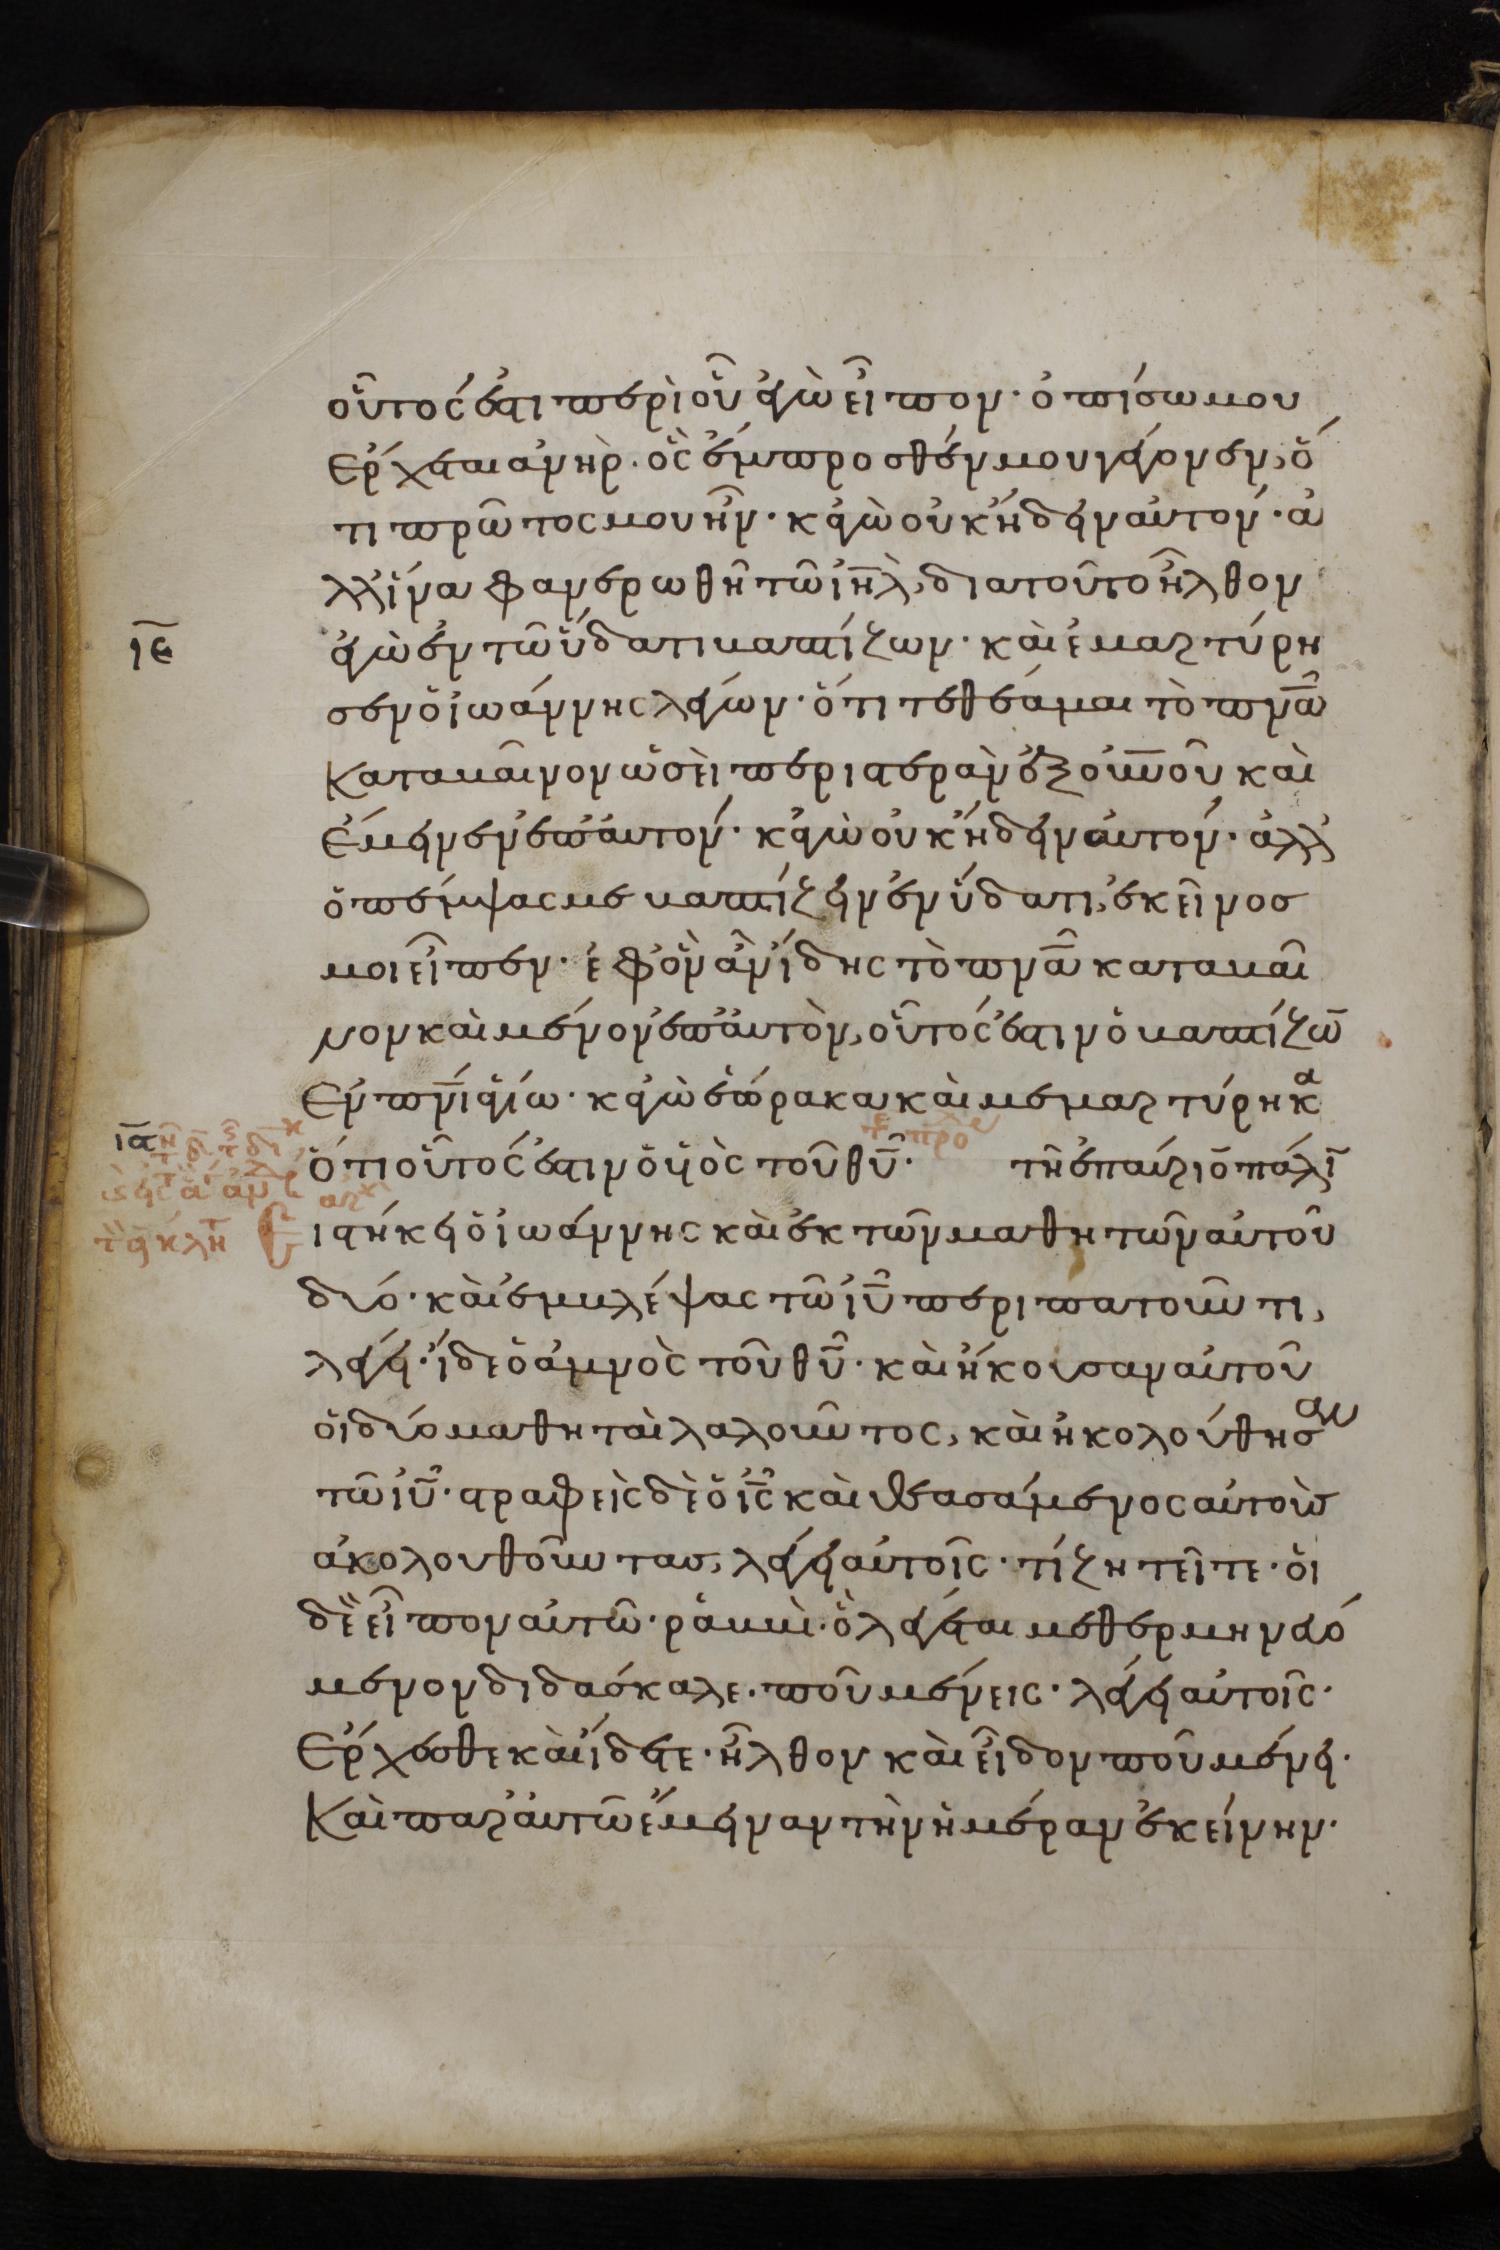 οὗτός ἐστι περὶ οὗ ἐγὼ εἶπον· ὀπίσω μου
ἔρχεται ἀνὴρ· ὃς ἔμπροσθέν μου γέγονεν, ὅ
τι πρῶτος μου ἦν· κἀγὼ οὐκ ἤδειν αὐτόν· ἀ
λλ' ἵνα φανερωθῆ τῶ ιηλ, διατοῦτο ἦλθον
ιε ἐγὼ ἐν τῶ ὕδατι βαπτίζων· καὶ ἐμαρτύρη
σεν ὁ ἰωάννης λέγων· ὅτι τεθέαμαι τὸ πνα
καταβαῖνον ὡσεὶ περιστερὰν ἐξ οὐνοῦ καὶ
ἔμεινεν ἐπ' αὐτόν· κἀγὼ οὐκ ἤδειν αὐτόν· ἀλλ'
ὁ πέμψας με βαπτίζειν ἐν ὕδατι, ἐκεῖνος
μοι εἶπεν· ἐφ' ὃν ἂν ἴδης τὸ πνα καταβαῖ
νον καὶ μένον ἐπ' αὐτὸν, οὗτός ἐστιν ὁ βαπτίζω
ἐν πνι ἁγίω· κἀγὼ ἑώρακα καὶ μεμαρτύρηκα
ια ὅτι οὗτός ἐστιν ὁ υἱὸς τοῦ θυ· τῆ ἐπαύριο πάλι
εἱστήκει ὁ ἰωάννης καὶ ἐκ τῶν μαθητῶν αὐτοῦ
δύο· καὶ ἐμβλέψας τῶ ιυ περιπατοῦντι,
λέγει· ἴδε ὁ ἀμνὸς τοῦ θυ· καὶ ἤκουσαν αὐτοῦ
οἱ δύο μαθηταὶ λαλοῦντος, καὶ ἠκολούθησαν
τῶ ιυ· στραφεὶς δὲ ὁ ις καὶ θεασάμενος αὐτοὺς
ἀκολουθοῦντας, λέγει αὐτοῖς· τί ζητεῖτε· οἱ
δὲ εἶπον αὐτῶ· ῥαββὶ· ὃ λέγεται μεθερμηνευό
μενον διδάσκαλε· ποῦ μένεις· λέγει αὐτοῖς·
ἔρχεσθε καὶ ἴδετε· ἦλθον καὶ εἶδον ποῦ μένει·
καὶ παρ' αὐτῶ ἔμειναν τὴν ἡμέραν ἐκείνην·